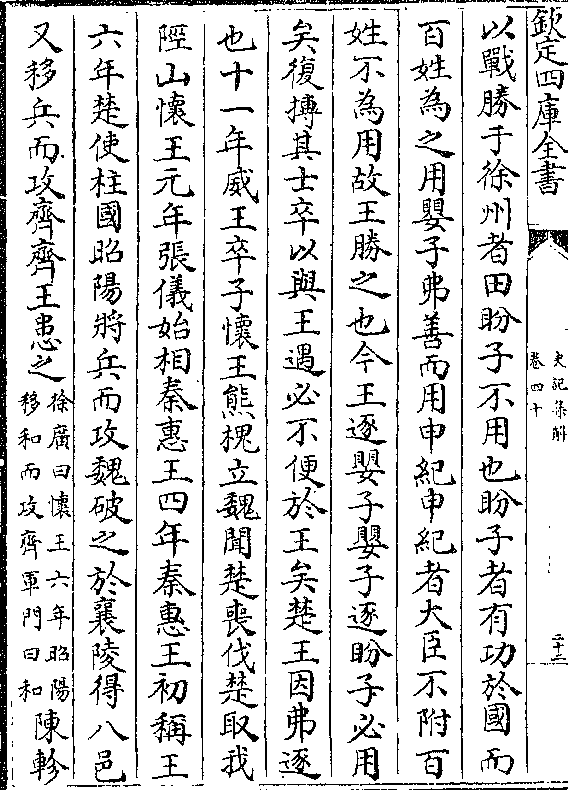 欽定四庫全書
史記集解
卷四十
二十二
以戰勝于徐州者田盼子不用也盼子者有功於國而
百姓為之用嬰子弗善而用申紀申紀者大臣不附百
姓不為用故王勝之也今王逐嬰子嬰子逐盼子必用
矣復搏其士卒以與王遇必不便於王矣楚王因弗逐
也十一年威王卒子懷王熊槐立魏聞楚喪伐楚取我
陘山懷王元年張儀始相秦惠王四年秦惠王初稱王
六年楚使柱國昭陽將兵而攻魏破之於襄陵得八邑
又移兵而攻齊齊王患之徐廣曰懷王六年昭陽移和而攻齊軍門曰和陳軫